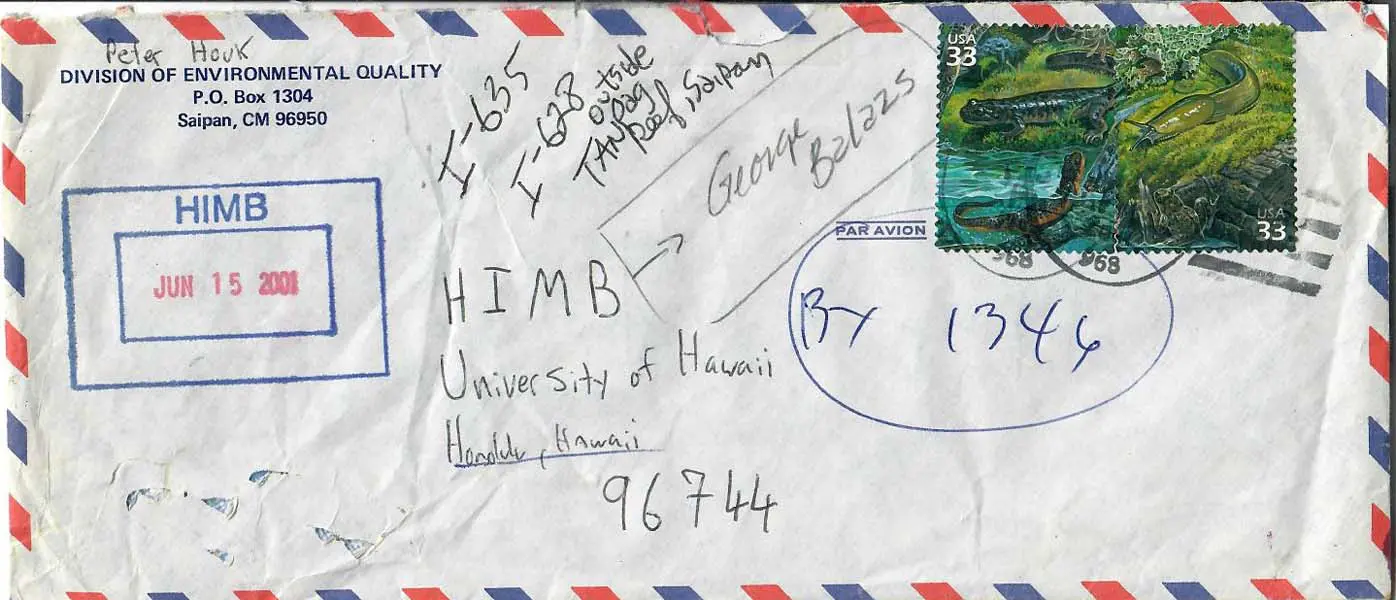 Peter Houk
DIVISION OF ENVIRONMENTAL QUALITY
P.O. Box 1304
Saipan, CM 96950
HIMB
JUN 15 2001
I-635
I-628 outside
TANPAG
Reef, Saipan
→ George
Balazs
USA
33
USA
33
PAR AVION
968
968
Bx 1346
HIMB
University of Hawaii
Honolulu, Hawaii
96744